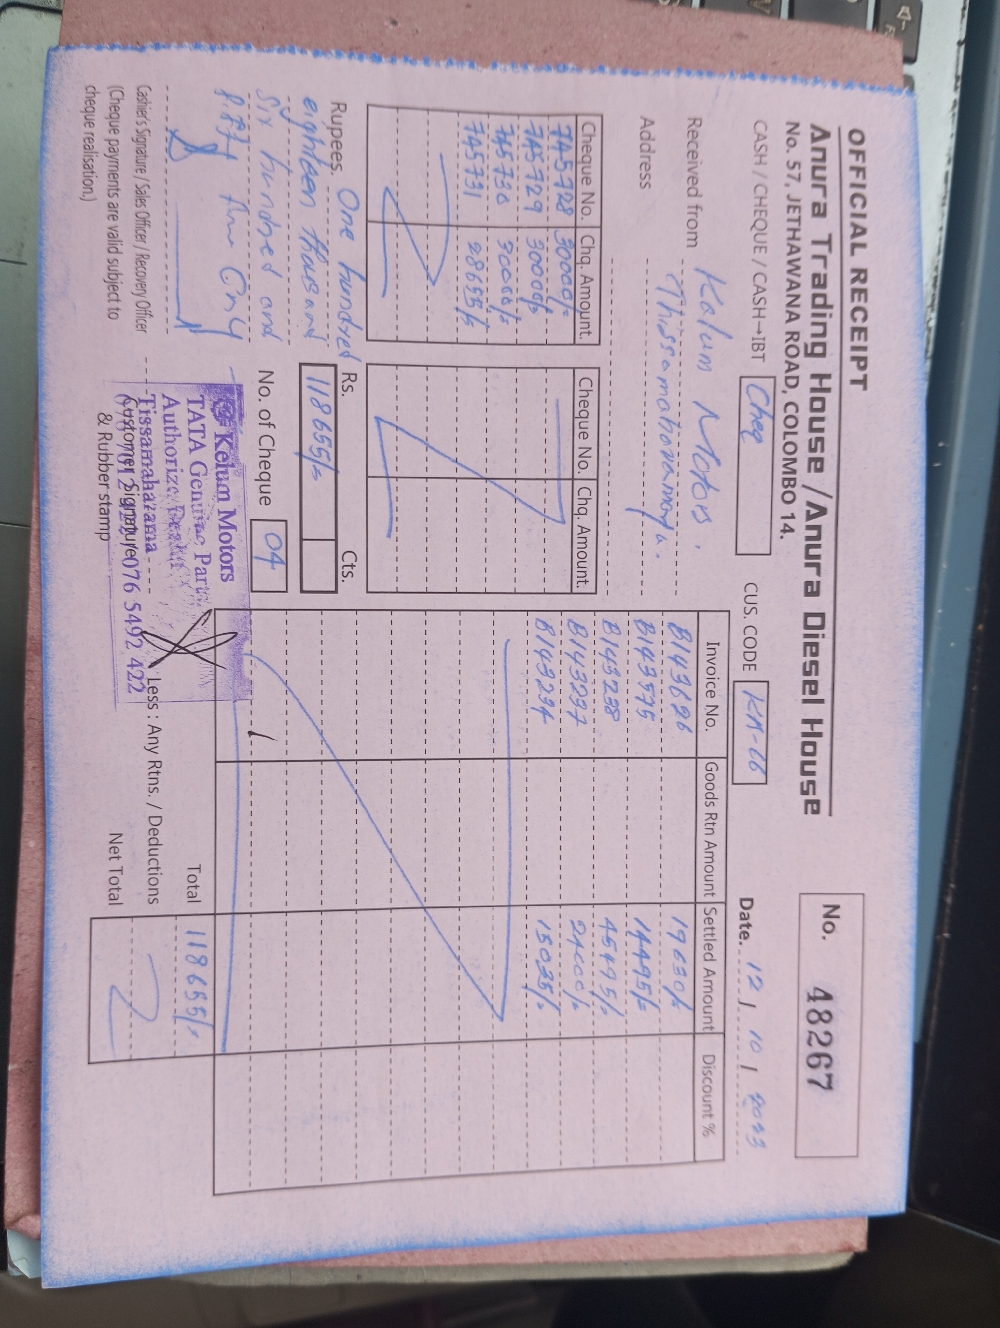 OFFICIAL RECEIPT
Anura Trading House / Anura Diesel House
No. 57, JETHAWANA ROAD, COLOMBO 14.
No. 48267
CASH / CHEQUE / CASH→IBT Cheq
CUS. CODE KA-66
Date. 12 / 10 / 2023
Received from Kalum Motors.
Address Thissamaharamaya.
Cheque No. Chq. Amount. Cheque No. Chq. Amount.
745728 30000/-
745729 30000/-
745730 30000/-
745731 28655/-
Invoice No. Goods Rtn Amount Settled Amount Discount %
B143626 19630/-
B143575 14495/-
B143238 45495/-
B143237 24000/-
B143234 15035/-
Rupees. One hundred
eighteen thousand
six hundred and
fifty five Only
Rs. Cts.
118655/-
No. of Cheque 04
Cashier's Signature / Sales Officer / Recovery Officer
(Cheque payments are valid subject to
cheque realisation.)
Kelum Motors
TATA Genuine Parts
Authorize Dealer
Tissamaharama
076 5492 422
Customer Signature
& Rubber stamp
Total 118655/-
Less : Any Rtns. / Deductions
Net Total